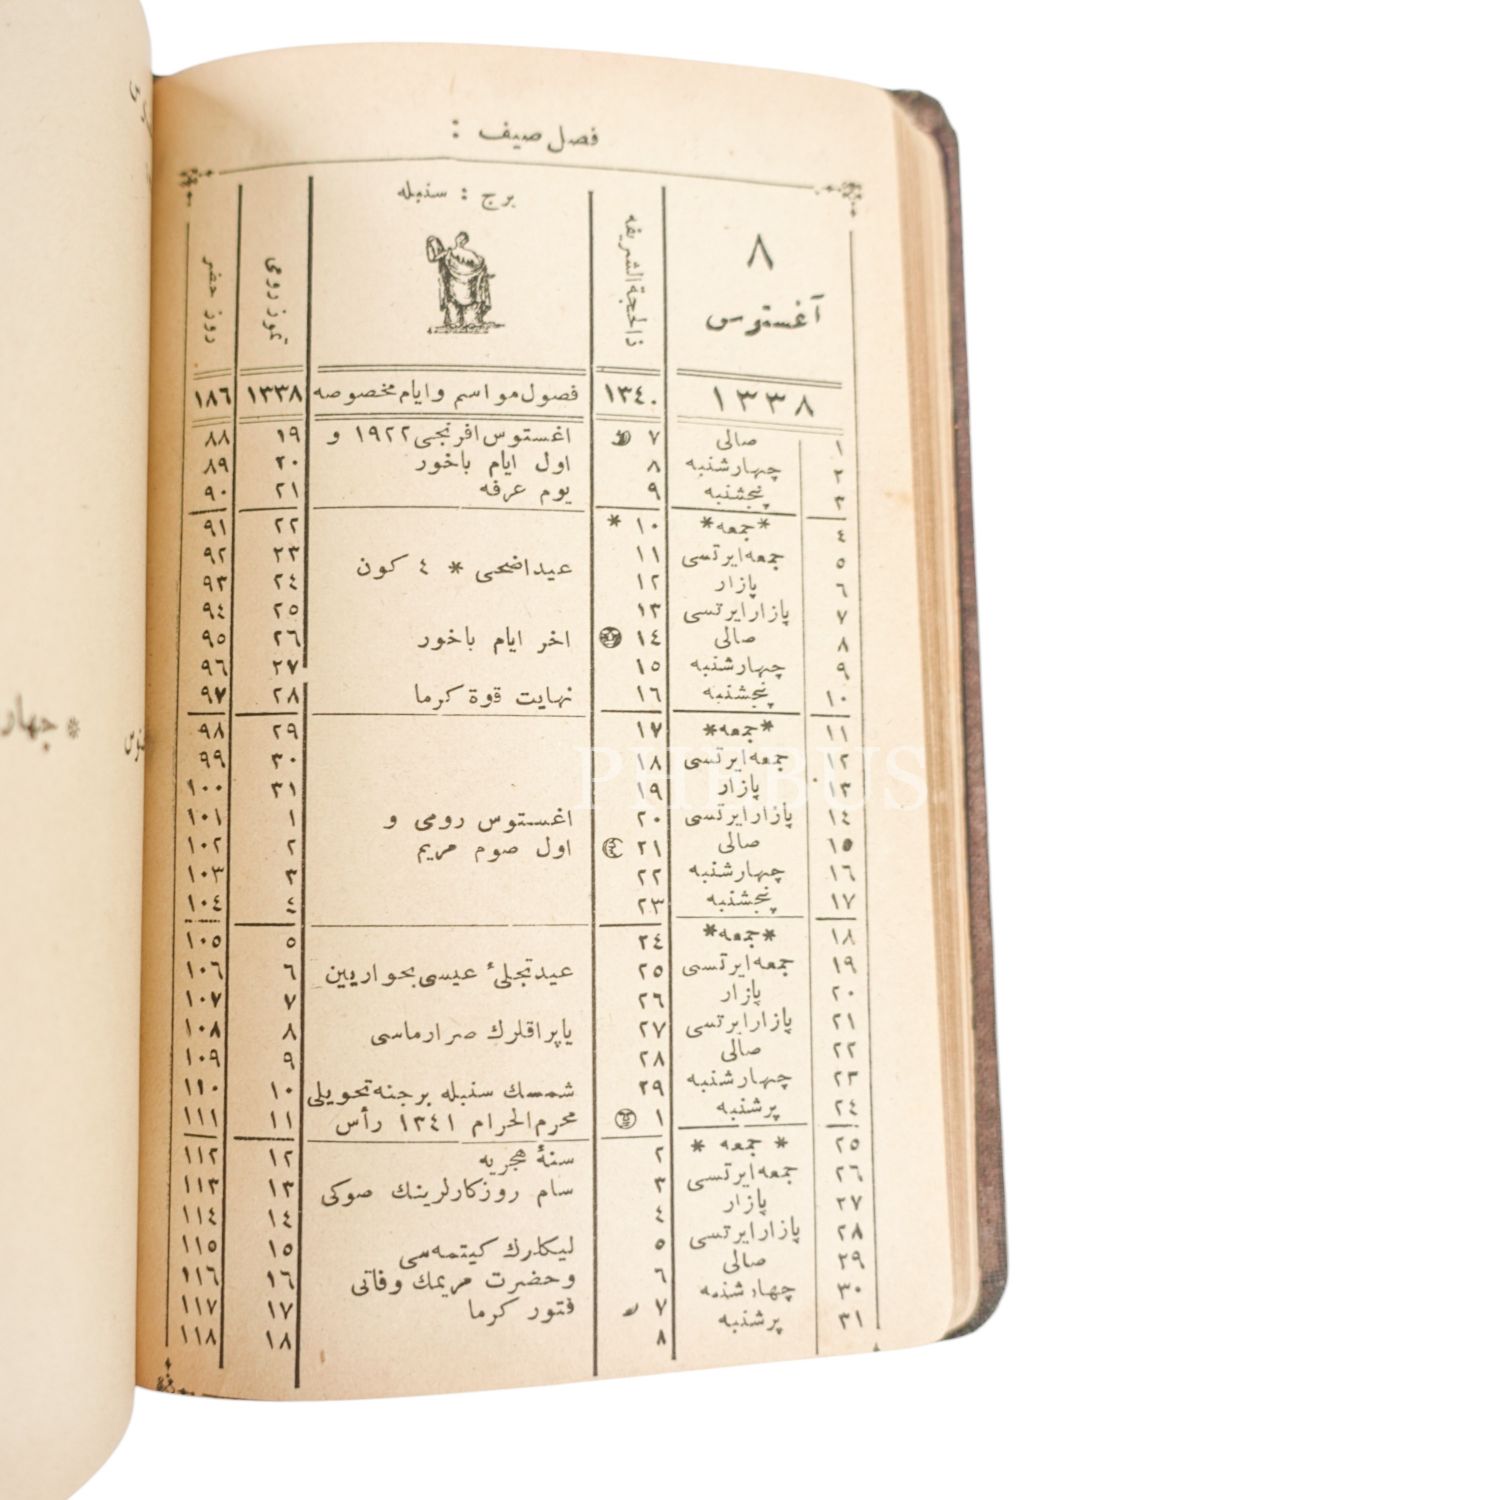 فصل صيف :
٨
آغستوس
ذالحجة الشريفه
برج : سنبله
تموز رومى
روز حضر
١٣٣٨ ١٣٤٠ فصول مواسم وايام مخصوصه ١٣٣٨ ١٨٦
١ صالى ٧ اغستوس افرنجى ١٩٢٢ و ١٩ ٨٨
٢ چهارشنبه ٨ اول ايام باخور ٢٠ ٨٩
٣ پنجشنبه ٩ يوم عرفه ٢١ ٩٠
٤ *جمعه* ١٠ * ٢٢ ٩١
٥ جمعه ايرتسى ١١ عيد اضحى * ٤ كون ٢٣ ٩٢
٦ پازار ١٢ ٢٤ ٩٣
٧ پازار ايرتسى ١٣ ٢٥ ٩٤
٨ صالى ١٤ اخر ايام باخور ٢٦ ٩٥
٩ چهارشنبه ١٥ ٢٧ ٩٦
١٠ پنجشنبه ١٦ نهايت قوة كرما ٢٨ ٩٧
١١ *جمعه* ١٧ ٢٩ ٩٨
١٢ جمعه ايرتسى ١٨ ٣٠ ٩٩
١٣ پازار ١٩ ٣١ ١٠٠
١٤ پازار ايرتسى ٢٠ اغستوس رومى و ١ ١٠١
١٥ صالى ٢١ اول صوم مريم ٢ ١٠٢
١٦ چهارشنبه ٢٢ ٣ ١٠٣
١٧ پنجشنبه ٢٣ ٤ ١٠٤
١٨ *جمعه* ٢٤ ٥ ١٠٥
١٩ جمعه ايرتسى ٢٥ عيد تجلىء عيسى بحواريين ٦ ١٠٦
٢٠ پازار ٢٦ ٧ ١٠٧
٢١ پازار ايرتسى ٢٧ ياپراقلرك صرارماسى ٨ ١٠٨
٢٢ صالى ٢٨ ٩ ١٠٩
٢٣ چهارشنبه ٢٩ شمسك سنبله برجنه تحويلى ١٠ ١١٠
٢٤ پرشنبه ١ محرم الحرام ١٣٤١ رأس ١١ ١١١
٢٥ * جمعه * ٢ سنۀ هجريه ١٢ ١١٢
٢٦ جمعه ايرتسى ٣ سام روزكارلرينك صوكى ١٣ ١١٣
٢٧ پازار ٤ ١٤ ١١٤
٢٨ پازار ايرتسى ٥ ليكلرك كيتمه سى ١٥ ١١٥
٢٩ صالى ٦ وحضرت مريمك وفاتى ١٦ ١١٦
٣٠ چهارشنبه ٧ فتور كرما ١٧ ١١٧
٣١ پرشنبه ٨ ١٨ ١١٨
* جهار
PHEBUS